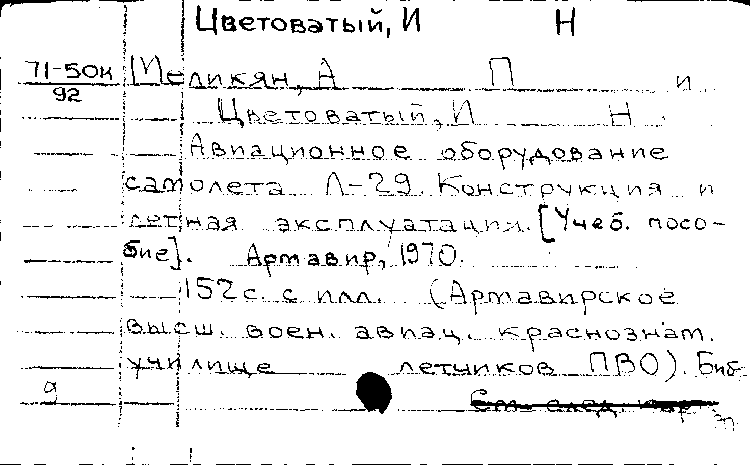 Цветоватый, И Н
71-50к Меликян, А П и
92
Цветоватый, И Н.
Авиационное оборудование
самолета Л-29. Конструкция и
летная эксплуатация. [Учеб. посо-
бие]. Армавир, 1970.
152 с. с илл. (Армавирское
высш. воен. авиац. краснознам.
училище летчиков ПВО). Биб-
9 См. след. кар.